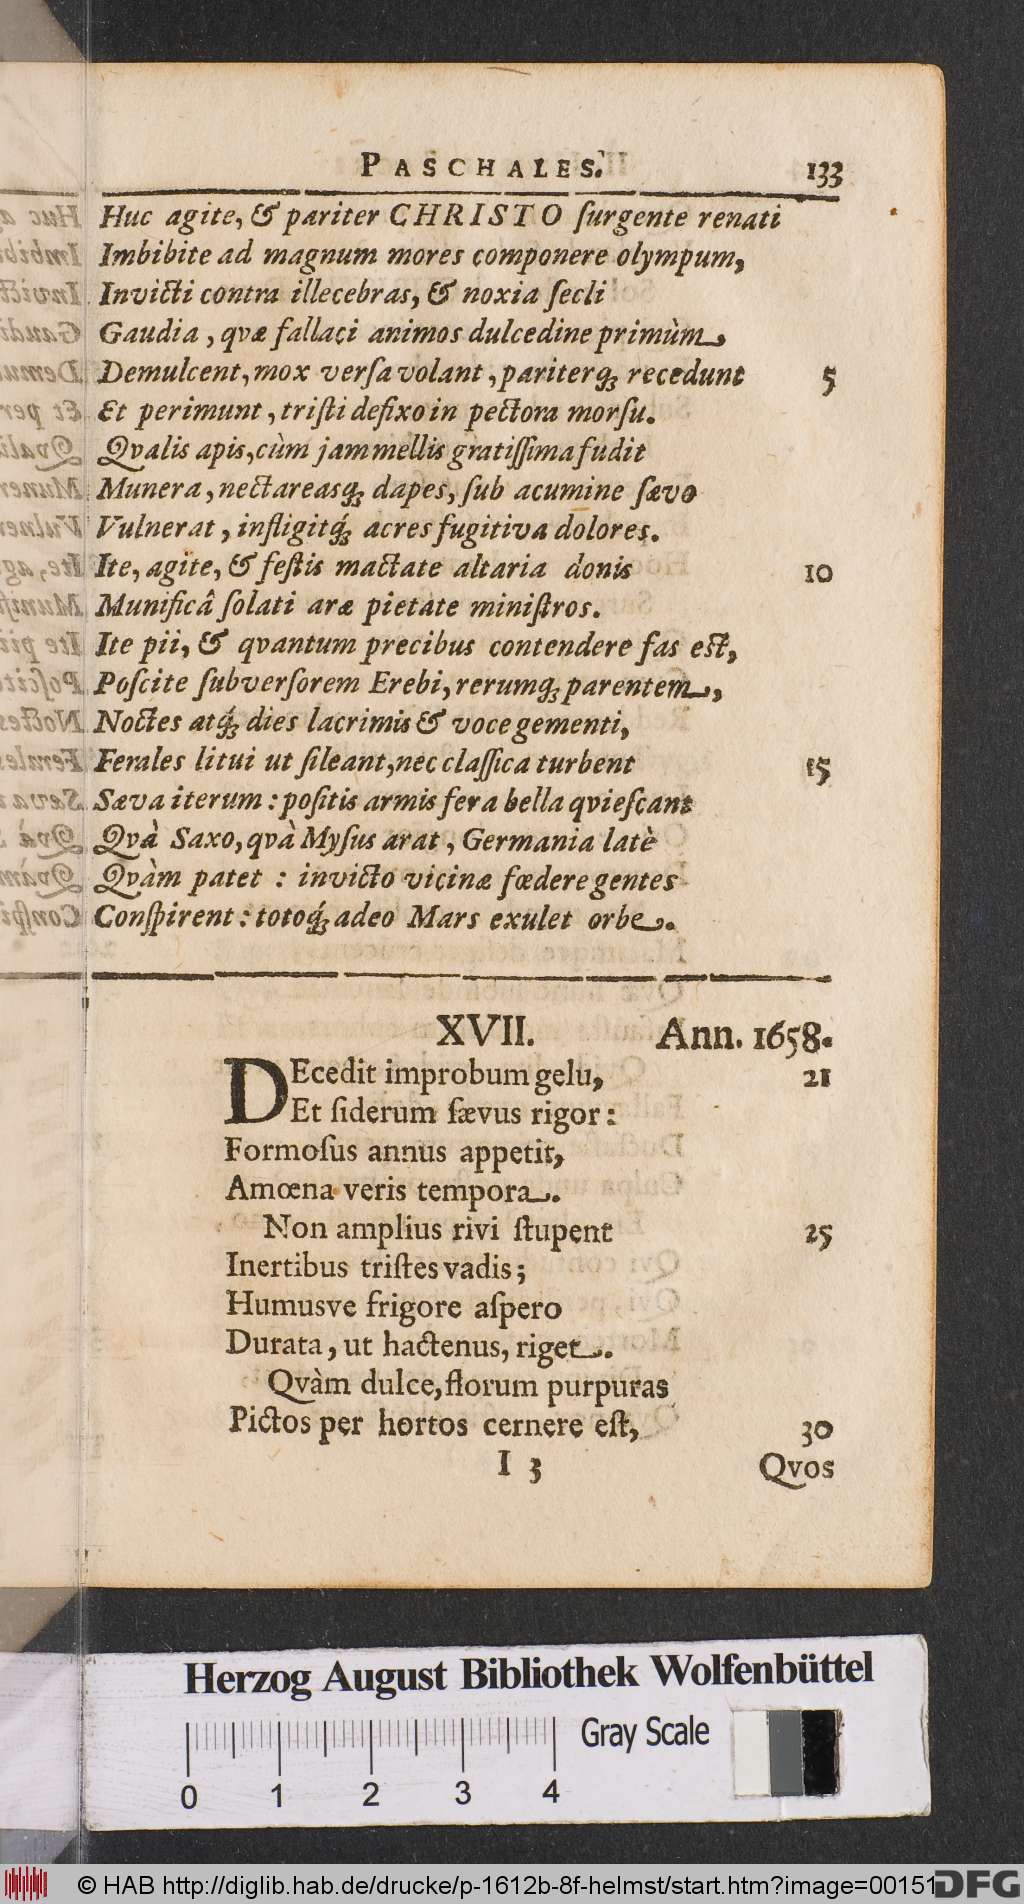 PASCHALES. 133
Huc agite, & pariter CHRISTO ſurgente renati
Imbibite ad magnum mores componere olympum,
Invicti contra illecebras, & noxia ſecli
Gaudia, qvæ fallaci animos dulcedine primùm,
Demulcent, mox verſa volant, pariterq; recedunt 5
Et perimunt, triſti defixo in pectora morſu.
Qvalis apis, cùm jam mellis gratiſſima fudit
Munera, nectareasq; dapes, ſub acumine ſævo
Vulnerat, infligitq́; acres fugitiva dolores.
Ite, agite, & feſtis mactate altaria donis 10
Munificâ ſolati aræ pietate miniſtros.
Ite pii, & qvantum precibus contendere fas eſt,
Poſcite ſubverſorem Erebi, rerumq; parentem,
Noctes atq́; dies lacrimis & voce gementi,
Ferales litui ut ſileant, nec claſſica turbent 15
Sæva iterum: poſitis armis fera bella qvieſcant
Qvà Saxo, qvà Myſus arat, Germania latè
Qvàm patet: invicto vicinæ fœdere gentes
Conſpirent: totoq́; adeo Mars exulet orbe.
XVII. Ann. 1658.
DEcedit improbum gelu, 21
Et ſiderum ſævus rigor:
Formoſus annus appetit,
Amœna veris tempora.
Non amplius rivi ſtupent 25
Inertibus triſtes vadis;
Humusve frigore aſpero
Durata, ut hactenus, riget.
Qvàm dulce, florum purpuras
Pictos per hortos cernere eſt, 30
I 3 Qvos
Herzog August Bibliothek Wolfenbüttel
Gray Scale
0 1 2 3 4
© HAB http://diglib.hab.de/drucke/p-1612b-8f-helmst/start.htm?image=00151
DFG